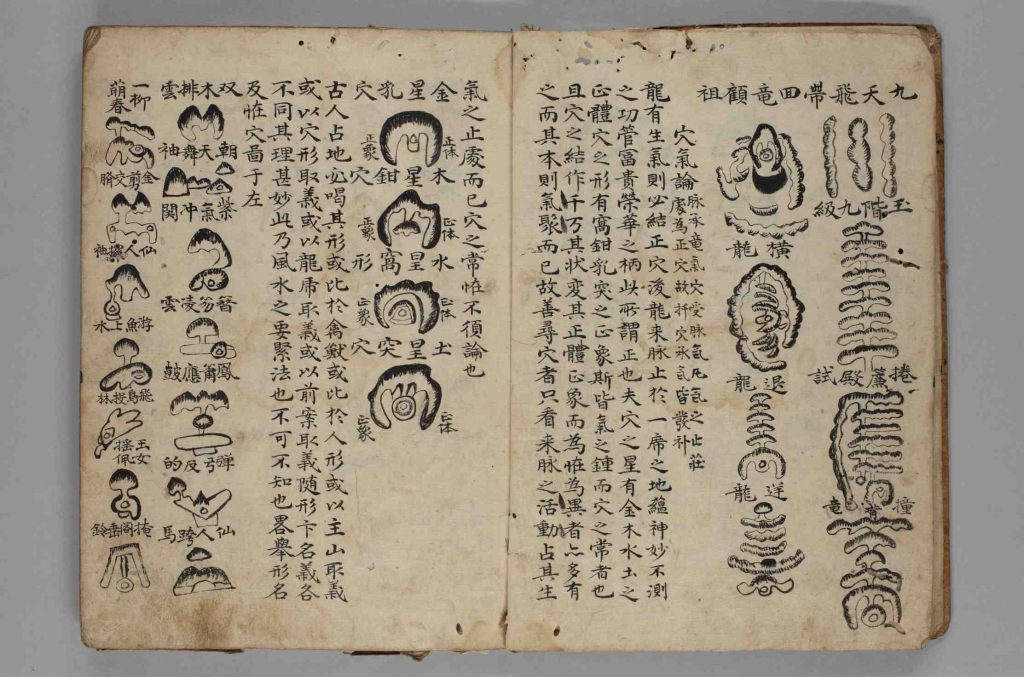 九天飛帶
竜顧祖
玉階九級
捲簾殿試
撞背竜
橫龍
退龍
送龍
穴氣論
龍有生氣則必結正穴後龍来脉止於一席之地蘊神妙不測
之功管富貴榮華之柄此所謂正也夫穴之星有金木水土之
正體穴之形有窩鉗乳突之正象斯皆氣之鍾而穴之常者也
且穴之結作千万其狀変其正體正象而為恠為異者亦多有
之而其本則氣聚而已故善尋穴者只看来脉之活動占其生
氣之止處而已穴之常恠不須論也
金星乳穴
正体
正象
木星鉗穴
正体
正象
水星窩形
正体
正象
土星突穴
正体
正象
古人占地必喝其形或比於禽獸或比於人形或以主山取義
或以穴形取義或以龍乕取義或以前案取義随形卞名義各
不同其理甚妙此乃風水之要緊法也不可不知也畧舉形名
及恠穴啚于左
双木排雲
朝天舞袖
紫氣冲関
笏凌雲
鳳應皷
弹弓反的
仙人跨馬
一柳萌春
金剪交
仙人袖
游魚上水
飛鳥投林
玉女搖佩
掩閣垂鈴